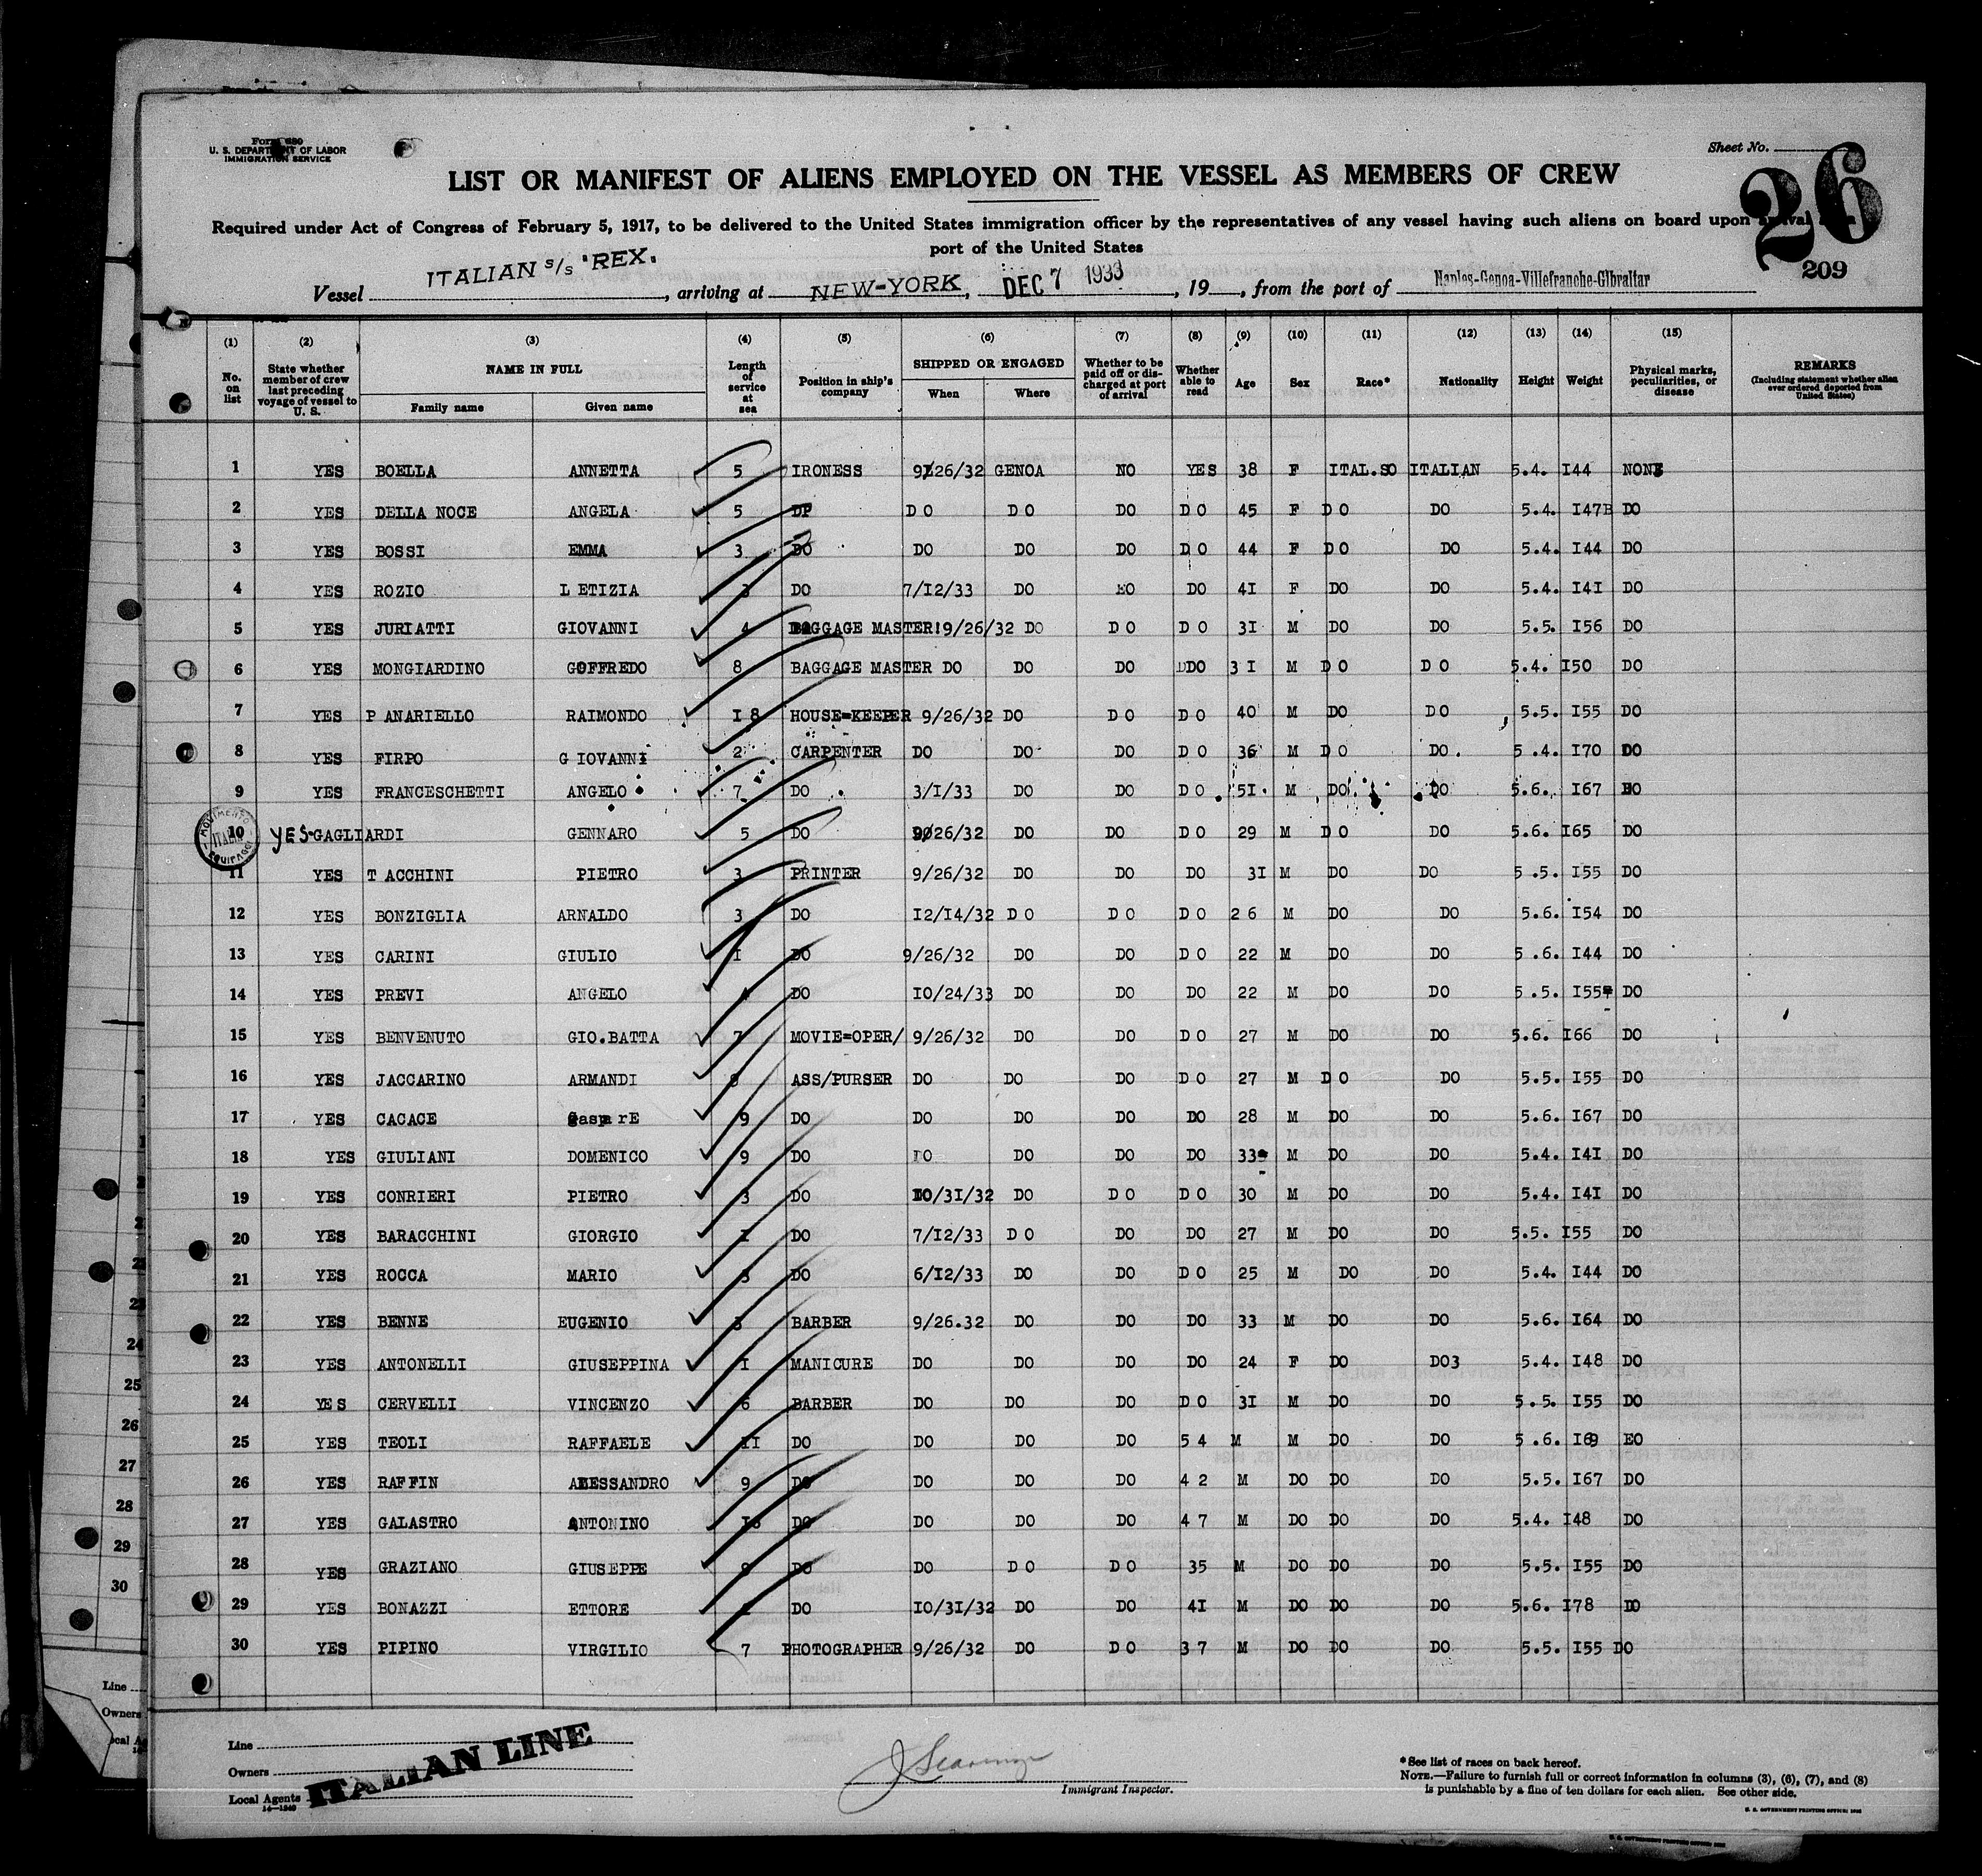 Form 680
U. S. DEPARTMENT OF LABOR
IMMIGRATION SERVICE
Sheet No.
26
209
LIST OR MANIFEST OF ALIENS EMPLOYED ON THE VESSEL AS MEMBERS OF CREW
Required under Act of Congress of February 5, 1917, to be delivered to the United States immigration officer by the representatives of any vessel having such aliens on board upon arrival
port of the United States
Vessel ITALIAN s/s "REX", arriving at NEW-YORK, DEC 7 1933, 19, from the port of Naples-Genoa-Villefranche-Gibraltar
(1) (2) (3) (4) (5) (6) (7) (8) (9) (10) (11) (12) (13) (14) (15)
No. on list State whether member of crew last preceding voyage of vessel to U. S. NAME IN FULL Family name Given name Length of service at sea Position in ship's company SHIPPED OR ENGAGED When Where Whether to be paid off or discharged at port of arrival Whether able to read Age Sex Race* Nationality Height Weight Physical marks, peculiarities, or disease REMARKS (Including statement whether alien ever ordered deported from United States)
1 YES BOELLA ANNETTA 5 IRONESS 9/26/32 GENOA NO YES 38 F ITAL.SO ITALIAN 5.4. I44 NONE
2 YES DELLA NOCE ANGELA 5 DO D O D O DO D O 45 F D O DO 5.4. I47 DO
3 YES BOSSI EMMA 3 DO DO DO DO D O 44 F D O DO 5.4. I44 DO
4 YES ROZIO L ETIZIA DO 7/I2/33 DO DO DO 4I F DO DO 5.4. I4I DO
5 YES JURIATTI GIOVANNI 4 BAGGAGE MASTER 9/26/32 DO D O D O 3I M DO DO 5.5. I56 DO
6 YES MONGIARDINO GOFFREDO 8 BAGGAGE MASTER DO DO DO DDO 3 I M D O D O 5.4. I50 DO
7 YES P ANARIELLO RAIMONDO I 8 HOUSE=KEEPER 9/26/32 DO D O D O 40 M DO D O 5.5. I55 DO
8 YES FIRPO G IOVANNI 2 CARPENTER DO DO DO D O 36 M D O DO. 5 .4. I70 DO
9 YES FRANCESCHETTI ANGELO 7 DO 3/I/33 DO DO D O 5I M DO DO 5.6. I67 DO
10 YES GAGLIARDI GENNARO 5 DO 9/26/32 DO DO D O 29 M D O DO 5.6. I65 DO
11 YES T ACCHINI PIETRO 3 PRINTER 9/26/32 DO DO DO 3I M DO DO 5 .5. I55 DO
12 YES BONZIGLIA ARNALDO 3 DO I2/I4/32 D O D O D O 2 6 M DO DO 5.6. I54 DO
13 YES CARINI GIULIO I DO 9/26/32 DO DO D O 22 M DO DO 5 .6. I44 DO
14 YES PREVI ANGELO 4 DO IO/24/33 DO DO DO 22 M DO DO 5 .5. I55 DO
15 YES BENVENUTO GIO.BATTA 7 MOVIE=OPER/ 9/26/32 DO DO D O 27 M DO DO 5.6. I66 DO
16 YES JACCARINO ARMANDI ASS/PURSER DO DO DO D O 27 M D O DO 5.5. I55 DO
17 YES CACACE Gaspa rE 9 DO DO DO DO DO 28 M DO DO 5.6. I67 DO
18 YES GIULIANI DOMENICO 9 DO DO DO DO DO 33 M DO DO 5.4. I4I DO
19 YES CONRIERI PIETRO 3 DO IO/3I/32 DO D O D O 30 M DO DO 5.4. I4I DO
20 YES BARACCHINI GIORGIO I DO 7/I2/33 D O DO DO 27 M DO DO 5.5. I55 DO
21 YES ROCCA MARIO DO 6/I2/33 DO DO D O 25 M DO DO 5.4. I44 DO
22 YES BENNE EUGENIO BARBER 9/26.32 DO DO DO 33 M DO DO 5.6. I64 DO
23 YES ANTONELLI GIUSEPPINA I MANICURE DO DO DO DO 24 F DO DO3 5.4. I48 DO
24 YE S CERVELLI VINCENZO 6 BARBER DO DO DO D O 3I M DO DO 5 .5. I55 DO
25 YES TEOLI RAFFAELE II DO DO DO DO 5 4 M M DO DO 5 .6. I69 DO
26 YES RAFFIN ALESSANDRO 9 DO DO DO DO 4 2 M DO DO DO 5.5. I67 DO
27 YES GALASTRO ANTONINO DO DO DO DO 4 7 M DO DO DO 5.4. I48 DO
28 YES GRAZIANO GIUSEPPE DO DO D O D O 35 M DO DO DO 5.5. I55 DO
29 YES BONAZZI ETTORE DO IO/3I/32 DO DO 4I M DO DO DO 5.6. I78 DO
30 YES PIPINO VIRGILIO 7 PHOTOGRAPHER 9/26/32 DO D O 3 7 M DO DO DO 5.5. I55 DO
Line
Owners
Local Agents
ITALIAN LINE
Immigrant Inspector.
*See list of races on back hereof.
NOTE.—Failure to furnish full or correct information in columns (3), (6), (7), and (8)
is punishable by a fine of ten dollars for each alien. See other side.